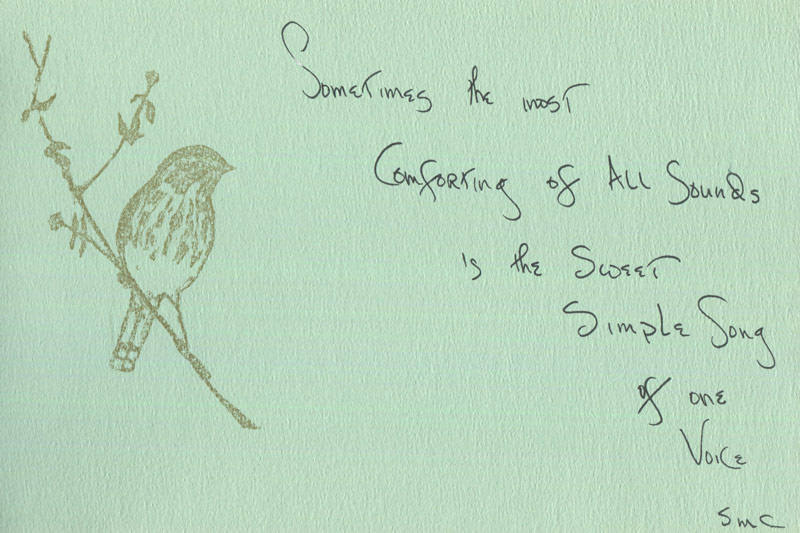 Sometimes the most
Comforting of All Sounds
is the Sweet
Simple Song
of one
Voice
smc